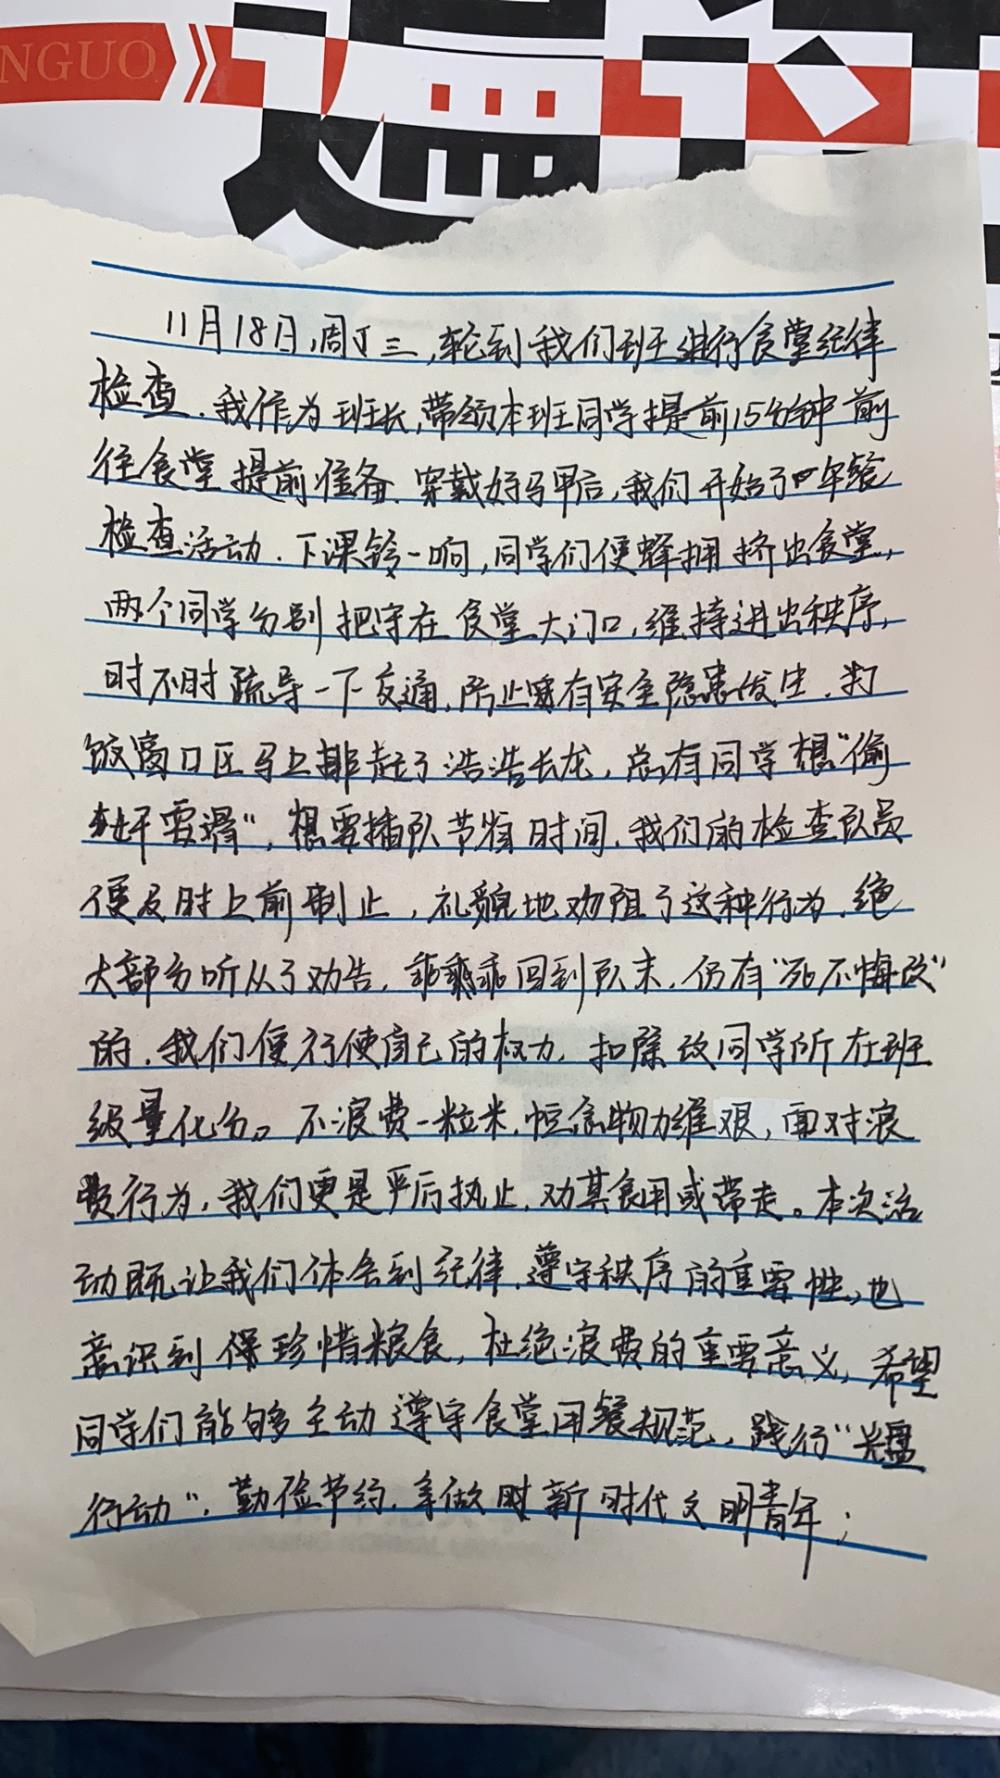 NGUO
11月18日,周三,轮到我们班进行食堂纪律
检查.我作为班长,带领本班同学提前15分钟前
往食堂提前准备.穿戴好马甲后,我们开始了午餐
检查活动.下课铃一响,同学们便蜂拥挤出食堂,
两个同学分别把守在食堂大门口,维持进出秩序,
时不时疏导一下交通,防止有安全隐患发生.打
饭窗口区马上排起了浩浩长龙,总有同学想"偷
奸耍滑",想要插队节省时间.我们的检查队员
便及时上前制止,礼貌地劝阻了这种行为.绝
大部分听从了劝告,乖乖回到队末,仍有"死不悔改"
的,我们便行使自己的权力,扣除改同学所在班
级量化分。不浪费一粒米,恒念物力维艰,面对浪
费行为,我们更是严厉执止,劝其食用或带走。本次活
动既让我们体会到纪律,遵守秩序的重要性,也
意识到珍惜粮食,杜绝浪费的重要意义,希望
同学们能够主动遵守食堂用餐规范,践行"光盘
行动",勤俭节约,争做时新时代文明青年;